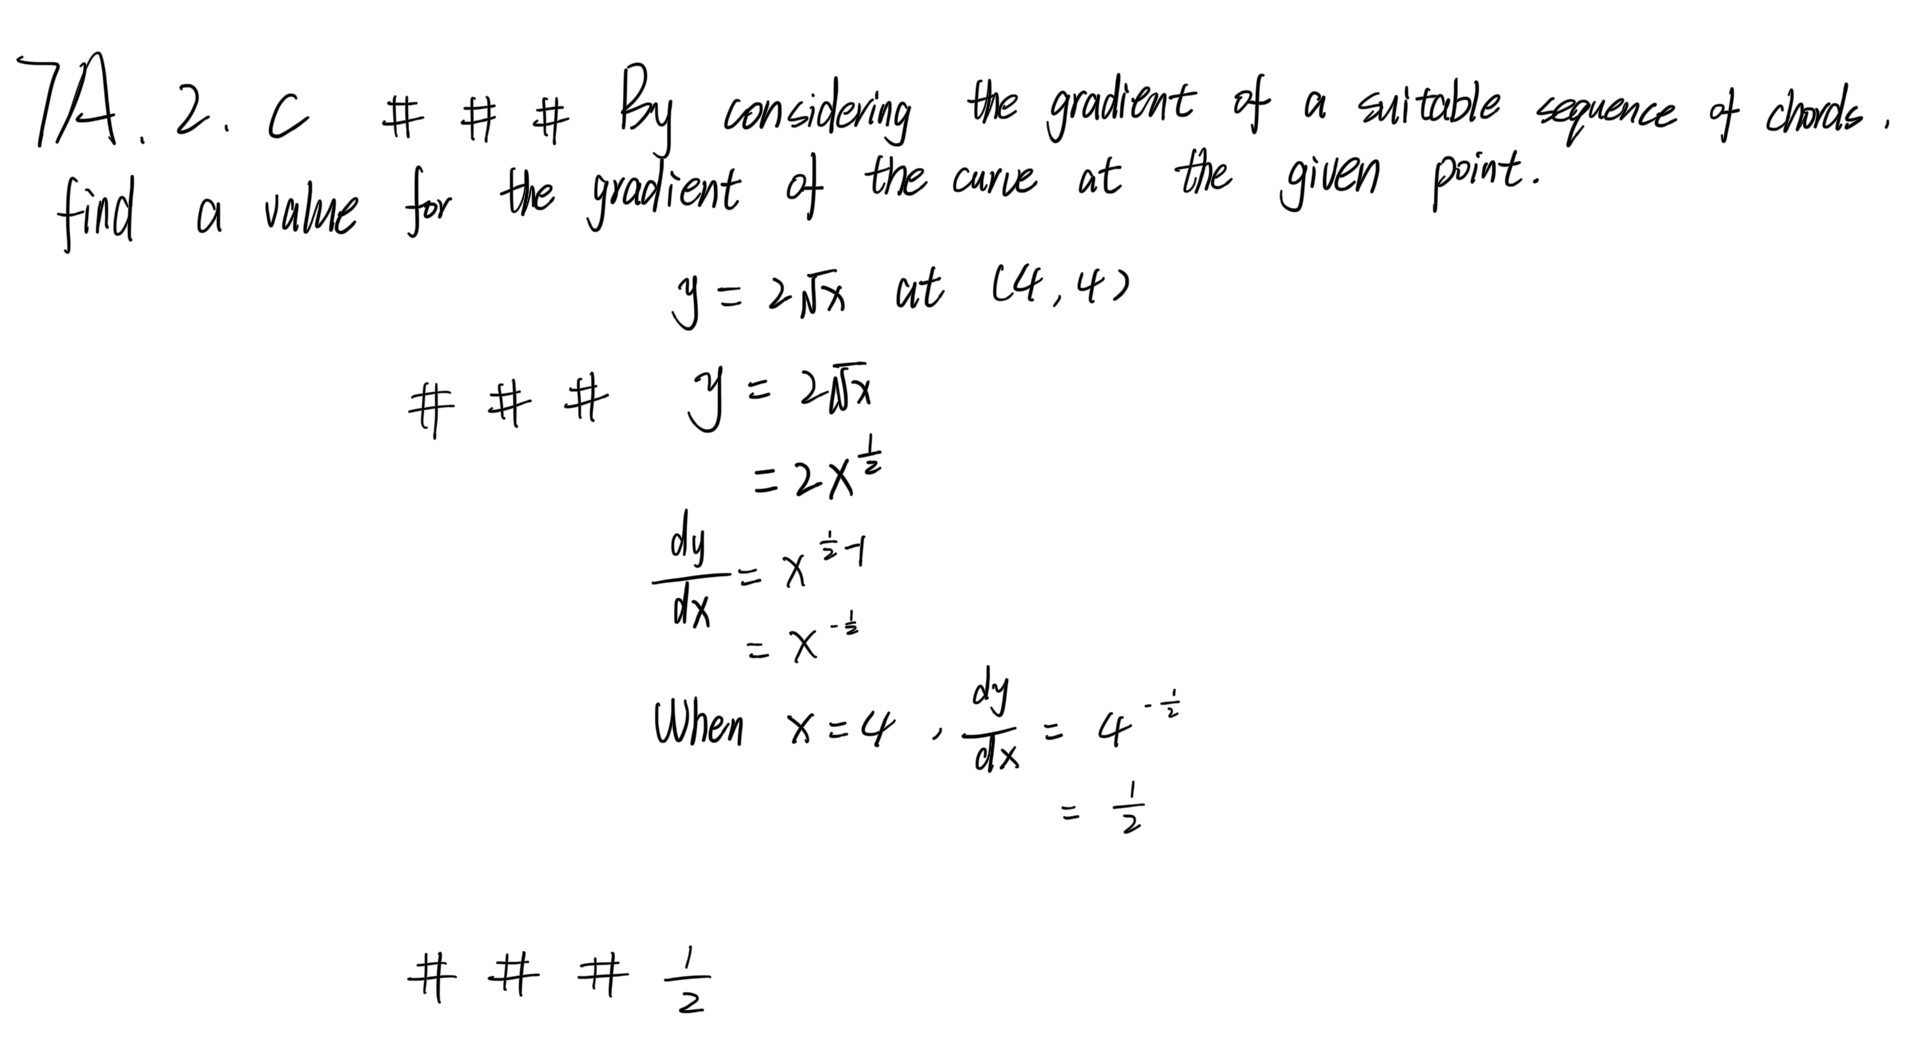 7A. 2. c # # # By considering the gradient of a suitable sequence of chords,
find a value for the gradient of the curve at the given point.
y = 2√x at (4, 4)
# # # y = 2√x
= 2x^{\frac{1}{2}}
\frac{dy}{dx} = x^{\frac{1}{2}-1}
= x^{-\frac{1}{2}}
When x = 4, \frac{dy}{dx} = 4^{-\frac{1}{2}}
= \frac{1}{2}
# # # \frac{1}{2}